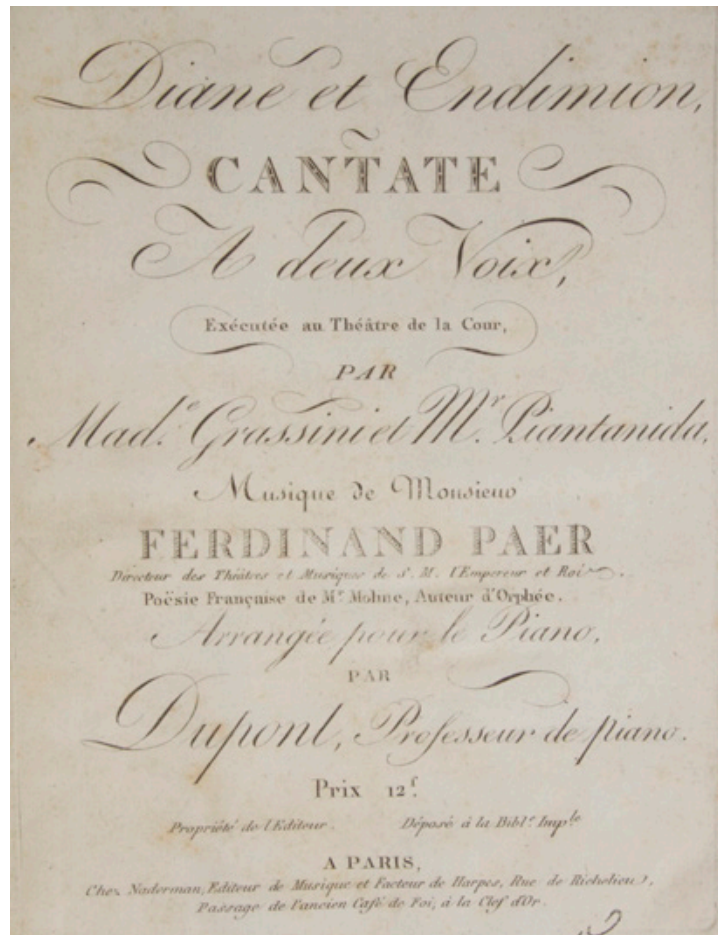 Diane et Endimion,
CANTATE
A deux Voix,
Exécutée au Théâtre de la Cour,
PAR
Mad.e Grassini et Mr. Piantanida,
Musique de Monsieur
FERDINAND PAER
Directeur des Théâtres et Musiques de S. M. l'Empereur et Roi.
Poësie Française de Mr Moline, Auteur d'Orphée.
Arrangée pour le Piano,
PAR
Dupont, Professeur de piano.
Prix 12f.
Propriété de l'Editeur. Déposé à la Bibl.e Imp.le
A PARIS,
Chez Naderman, Editeur de Musique et Facteur de Harpes, Rue de Richelieu,
Passage de l'ancien Café de Foi, à la Clef d'Or.